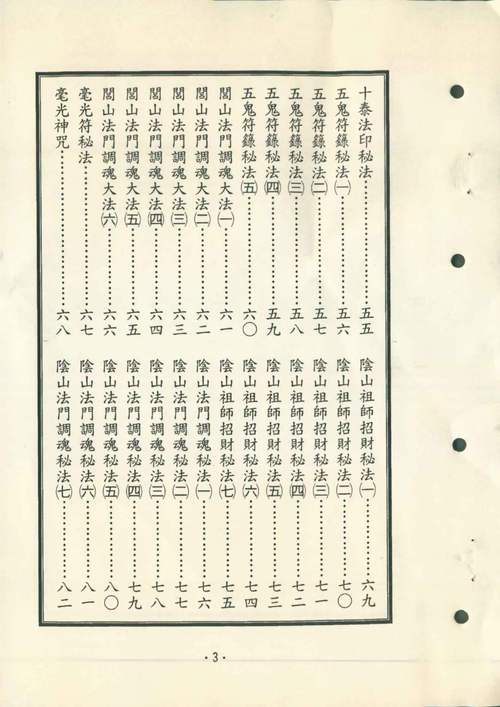 十泰法印秘法……五五
五鬼符籙秘法㈠……五六
五鬼符籙秘法㈡……五七
五鬼符籙秘法㈢……五八
五鬼符籙秘法㈣……五九
五鬼符籙秘法㈤……六〇
閭山法門調魂大法㈠……六一
閭山法門調魂大法㈡……六二
閭山法門調魂大法㈢……六三
閭山法門調魂大法㈣……六四
閭山法門調魂大法㈤……六五
閭山法門調魂大法㈥……六六
毫光符秘法……六七
毫光神咒……六八
陰山祖師招財秘法㈠……六九
陰山祖師招財秘法㈡……七〇
陰山祖師招財秘法㈢……七一
陰山祖師招財秘法㈣……七二
陰山祖師招財秘法㈤……七三
陰山祖師招財秘法㈥……七四
陰山祖師招財秘法㈦……七五
陰山法門調魂秘法㈠……七六
陰山法門調魂秘法㈡……七七
陰山法門調魂秘法㈢……七八
陰山法門調魂秘法㈣……七九
陰山法門調魂秘法㈤……八〇
陰山法門調魂秘法㈥……八一
陰山法門調魂秘法㈦……八二
·3·